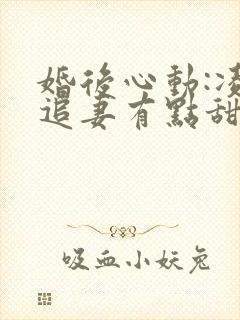 婚後心動:凌
追妻有點甜
吸血小妖兔